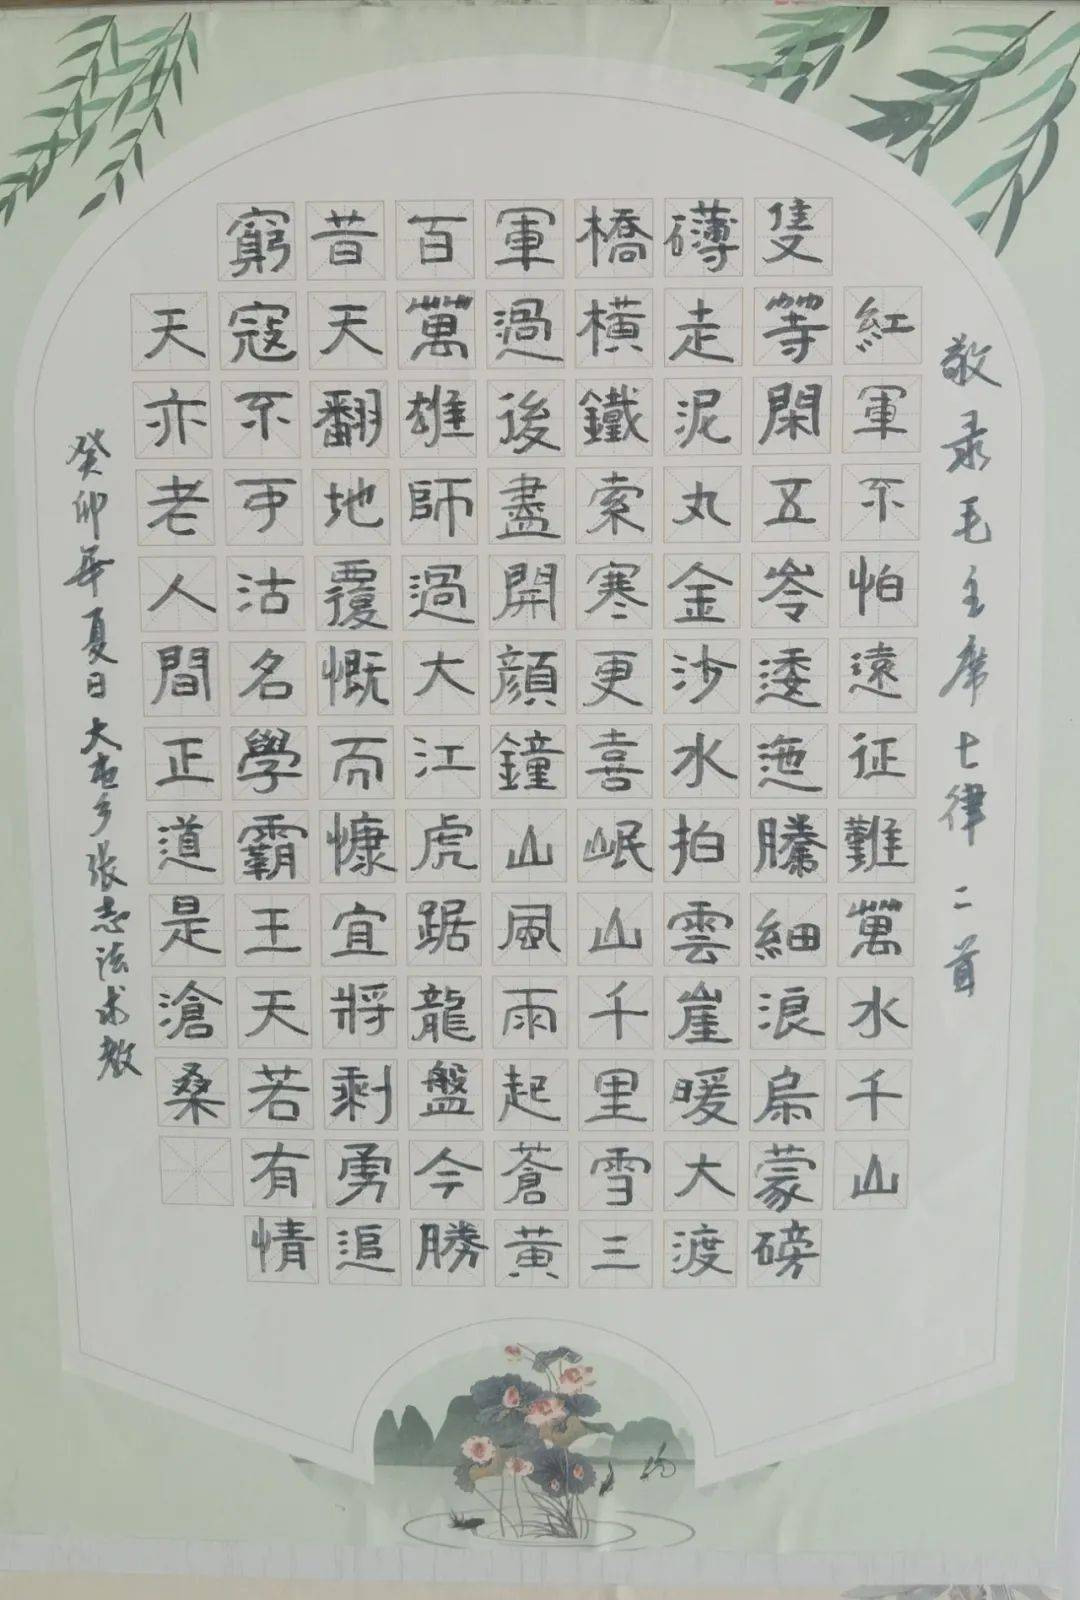 敬录毛主席七律二首
紅軍不怕遠征難萬水千山
隻等閑五岺逶迤騰細浪烏蒙磅
礴走泥丸金沙水拍雲崖暖大渡
橋橫鐵索寒更喜岷山千里雪三
軍過後盡開顔鐘山風雨起蒼黃
百萬雄師過大江虎踞龍盤今勝
昔天翻地覆慨而慷宜將剩勇追
窮寇不可沽名學霸王天若有情
天亦老人間正道是滄桑
癸卯年夏日大屯乡张志法求教